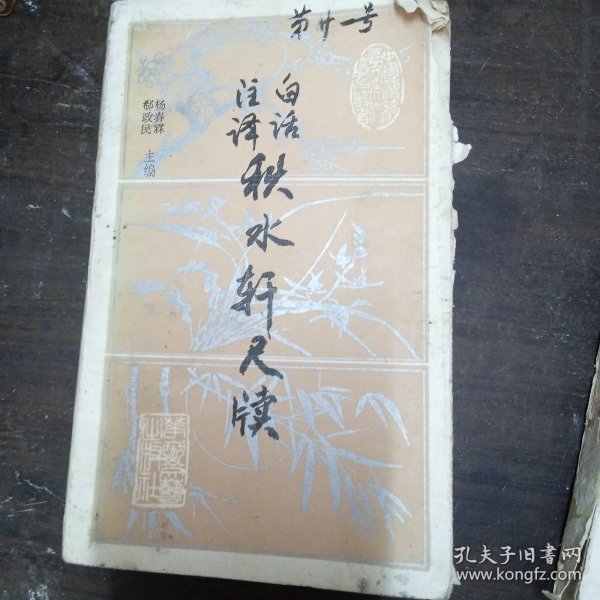 第廿一号
白话
注译
秋水轩尺牍
杨春霖
郗政民
主编
華岳文藝
出版社
孔夫子旧书网
www.kongfz.com